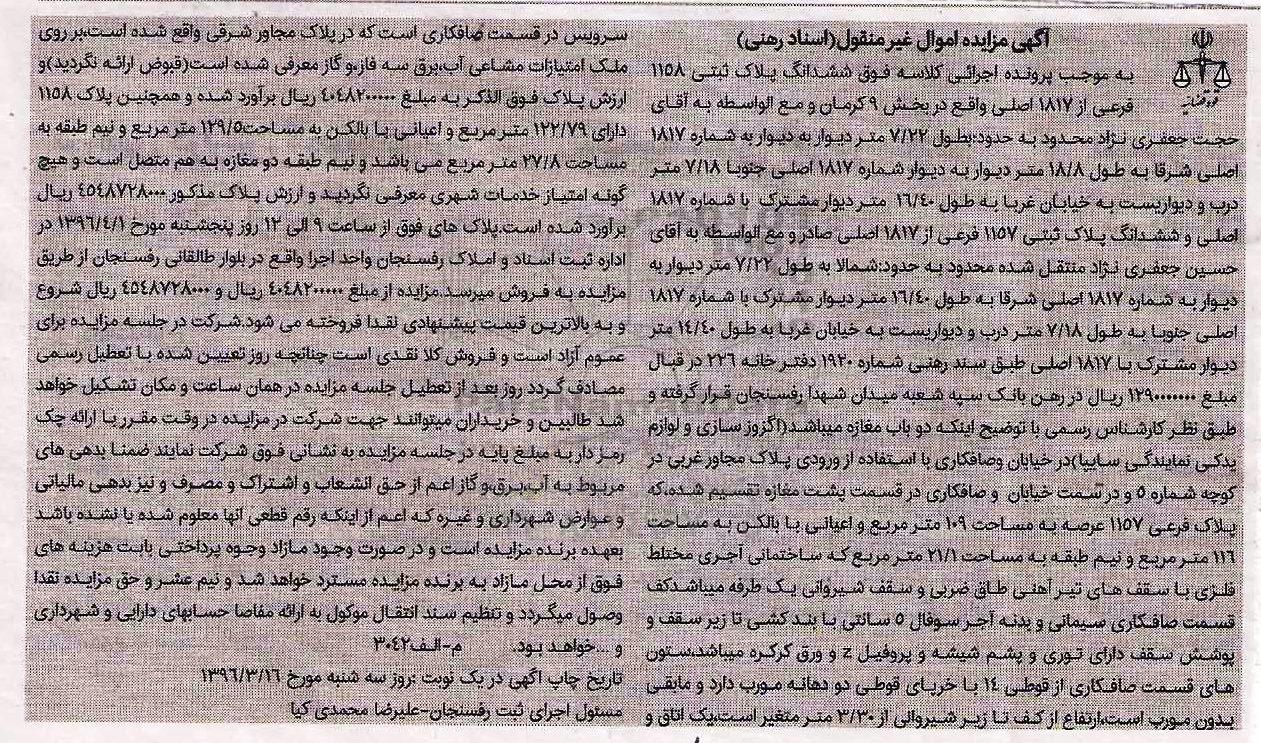 آگهی مزایده اموال غیر منقول(اسناد رهنی)
به موجب پرونده اجرائی کلاسه فوق ششدانگ پلاک ثبتی ۱۱۵۸
فرعی از ۱۸۱۷ اصلی واقع در بخش ۹ کرمان و مع الواسطه به آقای
حجت جعفری نژاد محدود به حدود:بطول ۷/۲۲ متر دیوار به دیوار به شماره ۱۸۱۷
اصلی شرقا به طول ۱۸/۸ متر دیوار به دیوار شماره ۱۸۱۷ اصلی جنوبا ۷/۱۸ متر
درب و دیواریست به خیابان غربا به طول ۱۶/۴۰ متر دیوار مشترک با شماره ۱۸۱۷
اصلی و ششدانگ پلاک ثبتی ۱۱۵۷ فرعی از ۱۸۱۷ اصلی صادر و مع الواسطه به آقای
حسین جعفری نژاد منتقل شده محدود به حدود:شمالا به طول ۷/۲۲ متر دیوار به
دیوار به شماره ۱۸۱۷ اصلی شرقا به طول ۱۶/۴۰ متر دیوار مشترک با شماره ۱۸۱۷
اصلی جنوبا به طول ۷/۱۸ متر درب و دیواریست به خیابان غربا به طول ۱۴/۴۰ متر
دیوار مشترک با ۱۸۱۷ اصلی طبق سند رهنی شماره ۱۹۲۰ دفتر خانه ۲۲۶ در قبال
مبلغ ۱۲۹۰۰۰۰۰۰۰ ریال در رهن بانک سپه شعبه میدان شهدا رفسنجان قرار گرفته و
طبق نظر کارشناس رسمی با توضیح اینکه دو باب مغازه میباشد(اگزوز سازی و لوازم
یدکی نمایندگی سایپا)در خیابان وصافکاری با استفاده از ورودی پلاک مجاور غربی در
کوچه شماره ۵ و در سمت خیابان و صافکاری در قسمت پشت مغازه تقسیم شده،که
پلاک فرعی ۱۱۵۷ عرصه به مساحت ۱۰۹ متر مربع و اعیانی با بالکن به مساحت
۱۱۶ متر مربع و نیم طبقه به مساحت ۲۱/۱ متر مربع که ساختمانی آجری مختلط
فلزی با سقف های تیر آهنی طاق ضربی و سقف شیروانی یک طرفه میباشدکف
قسمت صافکاری سیمانی و بدنه آجر سوفال ۵ سانتی با بند کشی تا زیر سقف و
پوشش سقف دارای توری و پشم شیشه و پروفیل z و ورق کرکره میباشد،ستون
های قسمت صافکاری از قوطی ۱۴ با خرپای قوطی دو دهانه مورب دارد و مابقی
بدون مورب است،ارتفاع از کف تا زیر شیروانی از ۳/۳۰ متر متغیر است،یک اتاق و
سرویس در قسمت صافکاری است که در پلاک مجاور شرقی واقع شده است،بر روی
ملک امتیازات مشاعی آب،برق سه فاز،و گاز معرفی شده است(قبوض ارائه نگردید)و
ارزش پلاک فوق الذکر به مبلغ ۴۰۴۸۲۰۰۰۰۰ ریال برآورد شده و همچنین پلاک ۱۱۵۸
دارای ۱۲۲/۷۹ متر مربع و اعیانی با بالکن به مساحت۱۲۹/۵ متر مربع و نیم طبقه به
مساحت ۲۷/۸ متر مربع می باشد و نیم طبقه دو مغازه به هم متصل است و هیچ
گونه امتیاز خدمات شهری معرفی نگردید و ارزش پلاک مذکور ۴۵۴۸۷۲۸۰۰۰ ریال
برآورد شده است.پلاک های فوق از ساعت ۹ الی ۱۲ روز پنجشنبه مورخ ۱۳۹۶/۴/۱ در
اداره ثبت اسناد و املاک رفسنجان واحد اجرا واقع در بلوار طالقانی رفسنجان از طریق
مزایده به فروش میرسد.مزایده از مبلغ ۴۰۴۸۲۰۰۰۰۰ ریال و ۴۵۴۸۷۲۸۰۰۰ ریال شروع
و به بالاترین قیمت پیشنهادی نقدا فروخته می شود.شرکت در جلسه مزایده برای
عموم آزاد است و فروش کلا نقدی است چنانچه روز تعیین شده با تعطیل رسمی
مصادف گردد روز بعد از تعطیل جلسه مزایده در همان ساعت و مکان تشکیل خواهد
شد طالبین و خریداران میتوانند جهت شرکت در مزایده در وقت مقرر با ارائه چک
رمز دار به مبلغ پایه در جلسه مزایده به نشانی فوق شرکت نمایند ضمنا بدهی های
مربوط به آب،برق،و گاز اعم از حق انشعاب و اشتراک و مصرف و نیز بدهی مالیاتی
و عوارض شهرداری و غیره که اعم از اینکه رقم قطعی آنها معلوم شده یا نشده باشد
بعهده برنده مزایده است و در صورت وجود مازاد وجوه پرداختی بابت هزینه های
فوق از محل مازاد به برنده مزایده مسترد خواهد شد و نیم عشر و حق مزایده نقدا
وصول میگردد و تنظیم سند انتقال موکول به ارائه مفاصا حسابهای دارایی و شهرداری
و ...خواهد بود. م-الف۳۰۴۲
تاریخ چاپ اگهی در یک نوبت :روز سه شنبه مورخ ۱۳۹۶/۳/۱۶
مسئول اجرای ثبت رفسنجان-علیرضا محمدی کیا